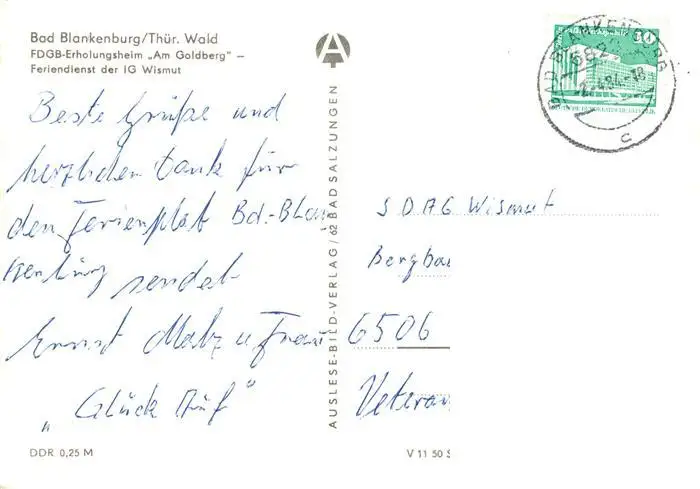 Bad Blankenburg/Thür. Wald
FDGB-Erholungsheim „Am Goldberg" –
Feriendienst der IG Wismut
Beste Grüße und
herzlichen Dank für
den Ferienplatz Bd.-Blan
kenburg sendet
Ernst Malz u. Frau
„Glück Auf"
DDR 0,25 M
AUSLESE-BILD-VERLAG / 62 BAD SALZUNGEN
V 11 50
BAD BLANKENBURG
682
-2.4.84.-18
c
20
SDAG Wismut
Bergbau
6506
Veteran